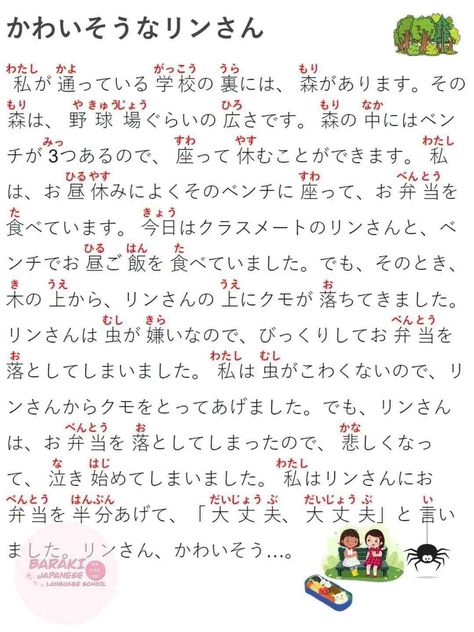 かわいそうなリンさん
わたし かよ がっこう うら もり
私が通っている学校の裏には、森があります。その
もり や きゅうじょう ひろ もり なか
森は、野球場ぐらいの広さです。森の中にはベン
みっ すわ やす わたし
チが3つあるので、座って休むことができます。私
ひるやす すわ べんとう
は、お昼休みによくそのベンチに座って、お弁当を
た きょう
食べています。今日はクラスメートのリンさんと、ベ
ひる はん た
ンチでお昼ご飯を食べていました。でも、そのとき、
き うえ うえ お
木の上から、リンさんの上にクモが落ちてきました。
むし きら べんとう
リンさんは虫が嫌いなので、びっくりしてお弁当を
お わたし むし
落としてしまいました。私は虫がこわくないので、リ
ンさんからクモをとってあげました。でも、リンさん
べんとう お かな
は、お弁当を落としてしまったので、悲しくなっ
な はじ わたし
て、泣き始めてしまいました。私はリンさんにお
べんとう はんぶん だいじょうぶ だいじょうぶ い
弁当を半分あげて、「大丈夫、大丈夫」と言い
ました。リンさん、かわいそう…。
BARAKI
JAPANESE
LANGUAGE SCHOOL